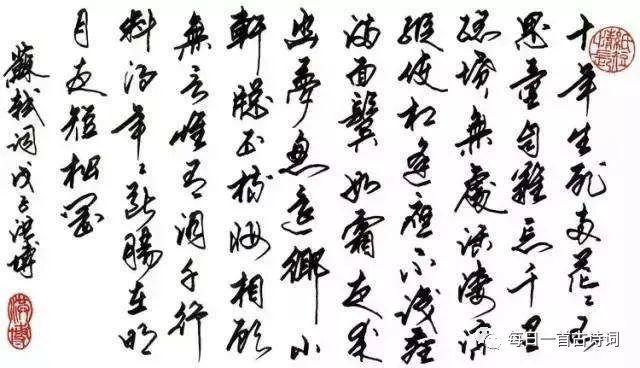 十年生死兩茫々不
思量自難忘千里
孤墳無處話凄涼
縱使相逢應不識塵
滿面鬢如霜夜來
幽夢忽還鄉小
軒窗正梳妝相顧
無言惟有淚千行
料得年々斷腸處明
月夜短松岡
蘇軾詞戊子洪博
每日一首古诗词